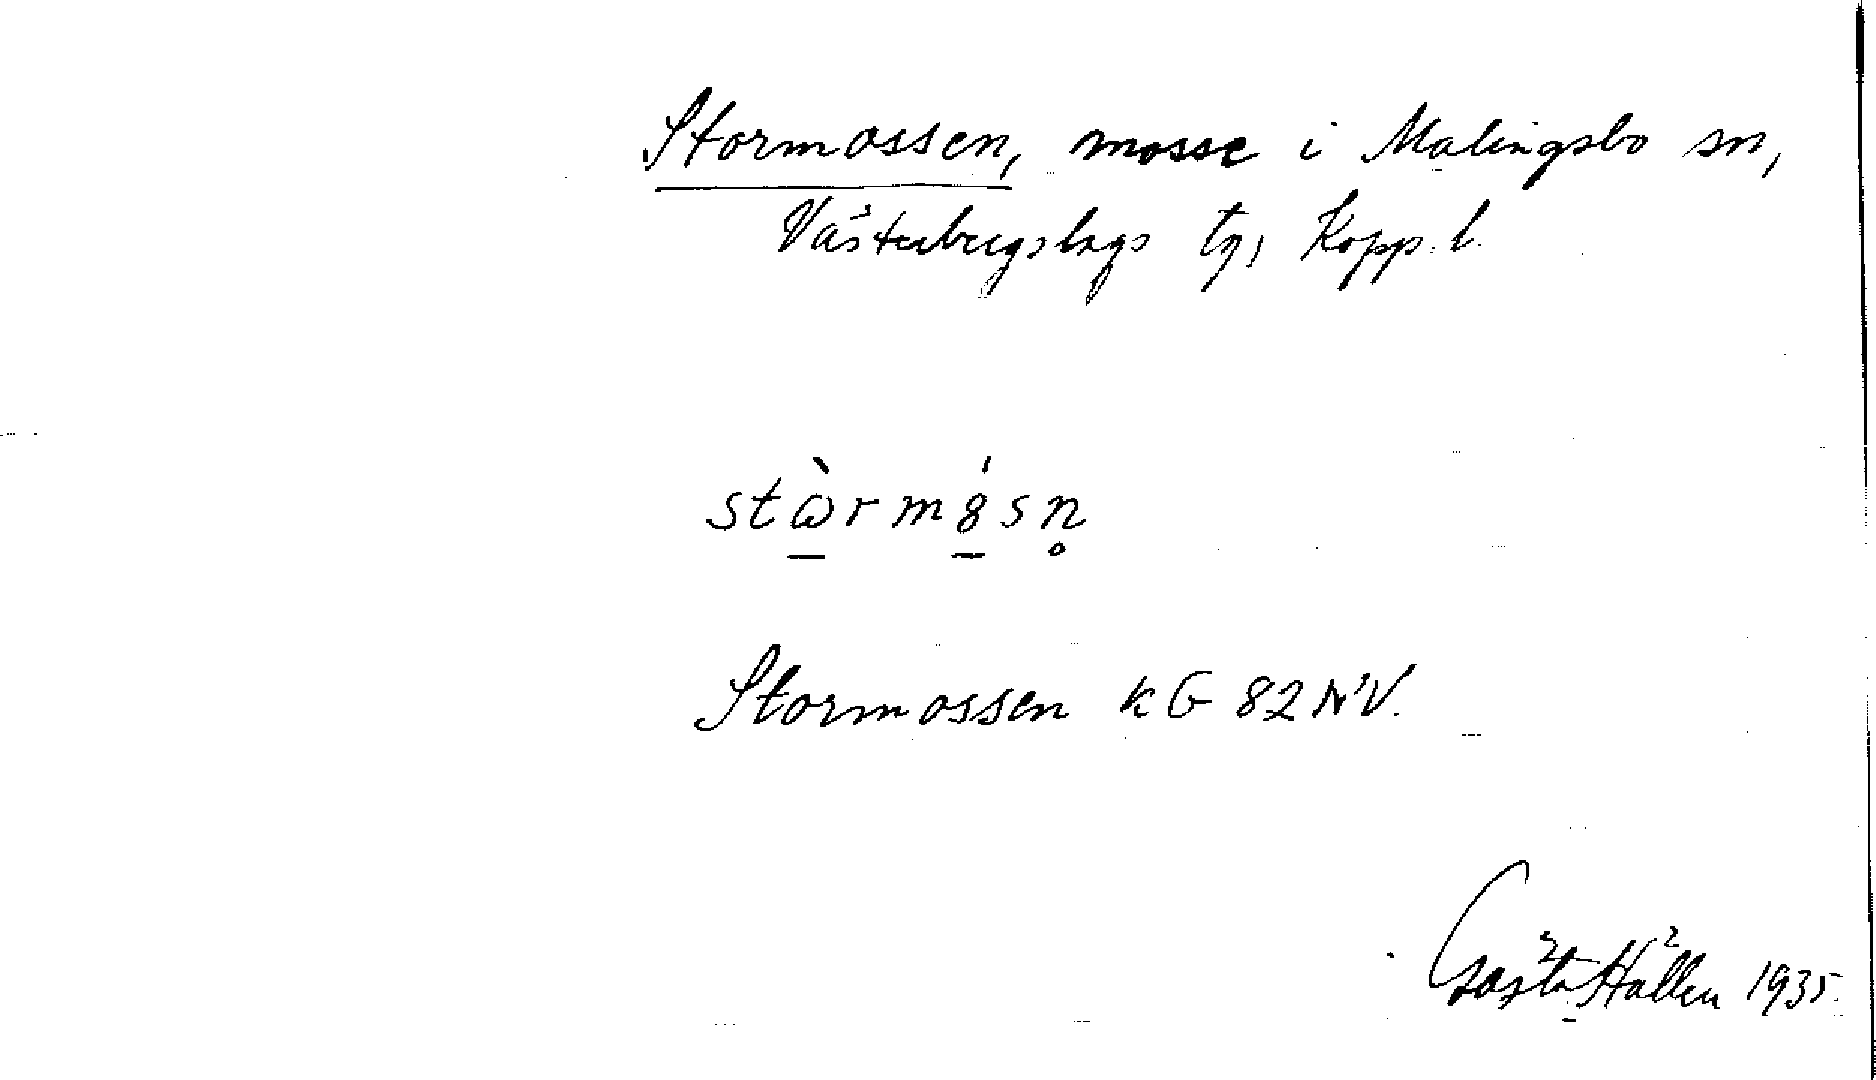 Stormossen, mosse i Malingsbo sn,
Västerbergslags tg, Kopp. l.
stὼ̲rm8̲́sn̥
Stormossen kG 82 NV.
Gösta Hallén 1935.